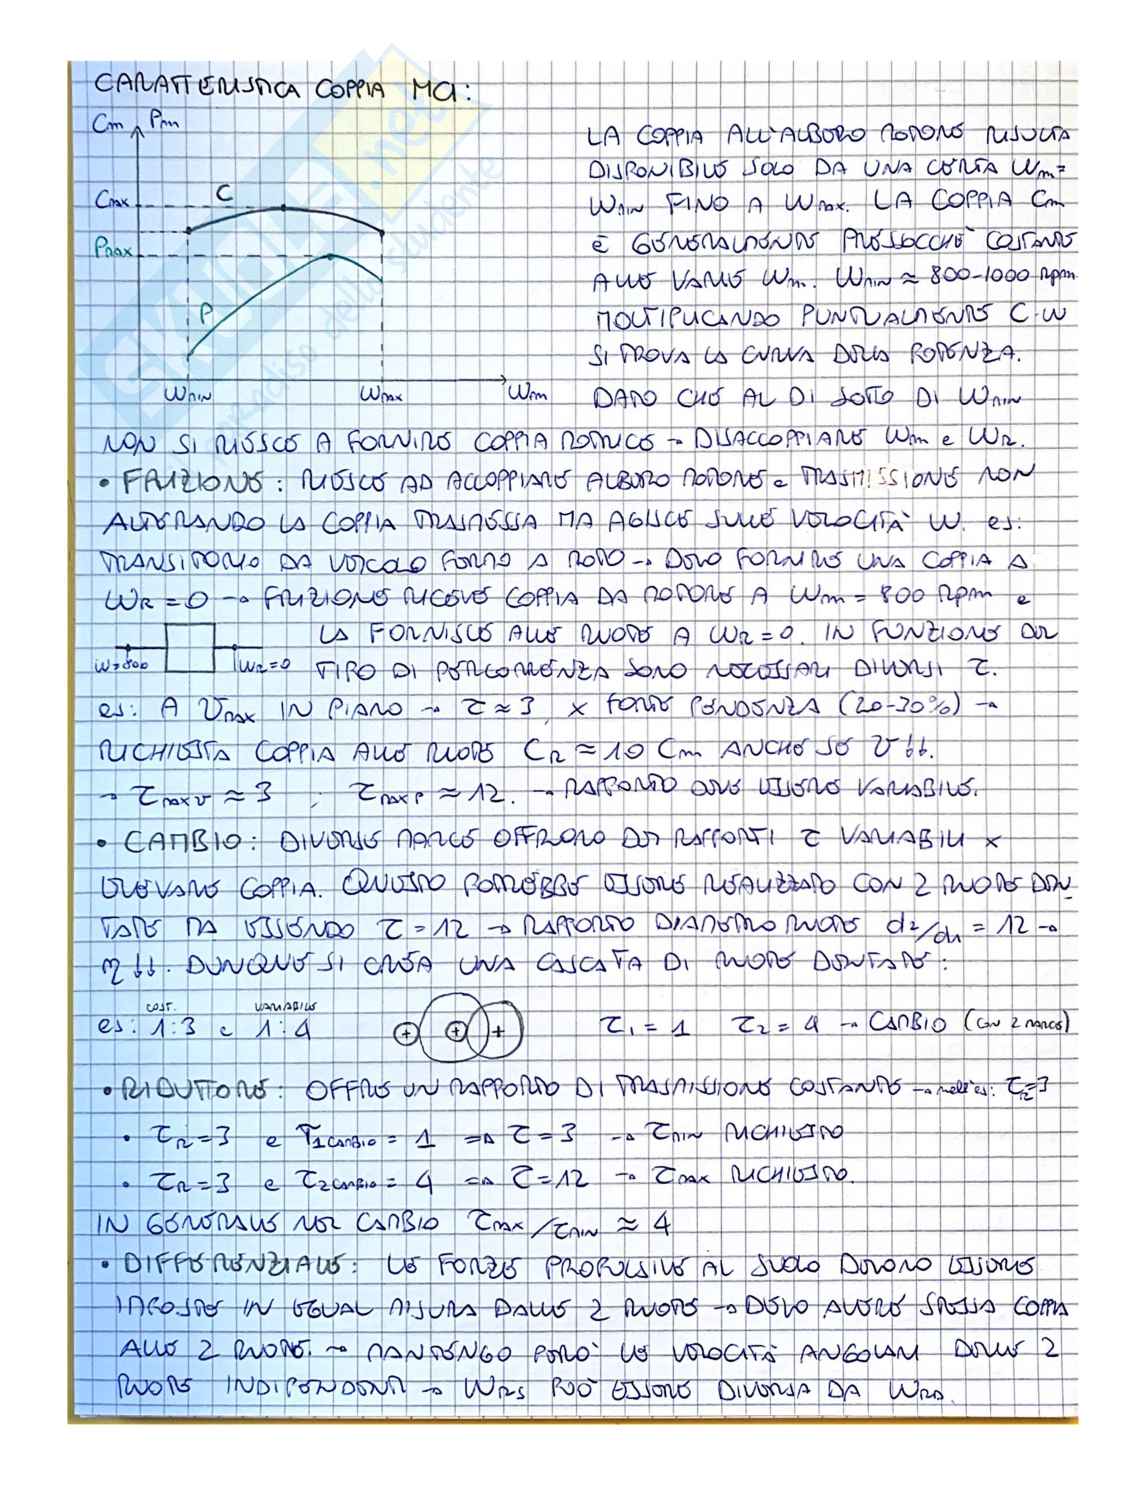 CARATTERISTICA COPPIA MCI:
Cm Pm
LA COPPIA ALL'ALBERO MOTORE RISULTA
DISPONIBILE SOLO DA UNA CERTA Wm=
Cmax C
Wmin FINO A Wmax. LA COPPIA Cm
Pmax
È GENERALMENTE PRESSOCCHÈ COSTANTE
ALLE VARIE Wm. Wmin ≈ 800-1000 rpm
P
MOLTIPLICANDO PUNTUALMENTE C·W
SI TROVA LA CURVA DELLA POTENZA.
Wmin Wmax Wm
DATO CHE AL DI SOTTO DI Wmin
NON SI RIESCE A FORNIRE COPPIA MOTRICE → DISACCOPPIARE Wm e WR.
• FRIZIONE: RIESCE AD ACCOPPIARE ALBERO MOTORE e TRASMISSIONE NON
ALTERANDO LA COPPIA TRASMESSA MA AGISCE SULLE VELOCITÀ W. es:
TRANSITORIO DA VEICOLO FERMO A MOTO → DEVO FORNIRE UNA COPPIA A
WR=0 → FRIZIONE RICEVE COPPIA DA MOTORE A Wm=800 rpm e
LA FORNISCE ALLE RUOTE A WR=0. IN FUNZIONE DEL
W=800 WR=0
TIPO DI PERCORRENZA SONO NECESSARI DIVERSI τ.
es: A Vmax IN PIANO → τ≈3, x FORTE PENDENZA (20-30%) →
RICHIESTA COPPIA ALLE RUOTE CR ≈ 10 Cm ANCHE SE V↓↓.
→ τmaxv ≈ 3 ; τmaxp ≈ 12. → RAPPORTO DEVE ESSERE VARIABILE.
• CAMBIO: DIVERSE MARCE OFFRONO DEI RAPPORTI τ VARIABILI x
ELEVARE COPPIA. QUESTO POTREBBE ESSERE REALIZZATO CON 2 RUOTE DEN
TATE MA ESSENDO τ=12 → RAPPORTO DIAMETRO RUOTE d2/d1 = 12 →
η↓↓. DUNQUE SI CREA UNA CASCATA DI RUOTE DENTATE:
COST. VARIABILE
es: 1:3 e 1:4
τ1 = 1 τ2 = 4 → CAMBIO (con 2 marce)
• RIDUTTORE: OFFRE UN RAPPORTO DI TRASMISSIONE COSTANTE → nell'es: τR=3
• τR=3 e τ1CAMBIO = 1 ⇒ τ=3 → τmin RICHIESTO
• τR=3 e τ2CAMBIO = 4 ⇒ τ=12 → τmax RICHIESTO.
IN GENERALE NEL CAMBIO τmax/τmin ≈ 4
• DIFFERENZIALE: LE FORZE PROPULSIVE AL SUOLO DEVONO ESSERE
IMPOSTE IN EGUAL MISURA DALLE 2 RUOTE → DEVO AVERE STESSA COPPIA
ALLE 2 RUOTE. → MANTENGO PERÒ LE VELOCITÀ ANGOLARI DELLE 2
RUOTE INDIPENDENTI → WRS PUÒ ESSERE DIVERSA DA WRD.
SKUOLA.net
paradiso dello studente